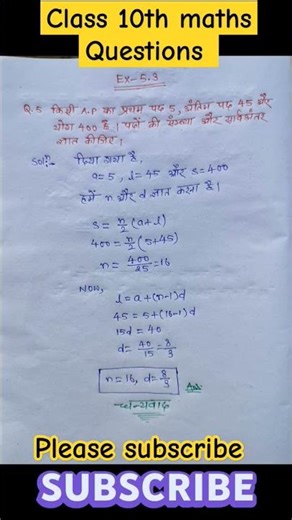 Class 10th maths
Questions
Ex-5.3
Q.5 किसी A.P का प्रथम पद 5, अंतिम पद 45 और
योग 400 है। पदों की संख्या और सार्वअंतर
ज्ञात कीजिए।
Sol:- दिया गया है,
a=5, l=45 और S=400
हमें n और d ज्ञात करना है।
S = n/2 (a+l)
400 = n/2 (5+45)
n = 400/25 = 16
Now,
l = a+(n-1)d
45 = 5+(16-1)d
15d = 40
d = 40/15 = 8/3
n=16, d=8/3 Ans.
धन्यवाद
Please subscribe
SUBSCRIBE